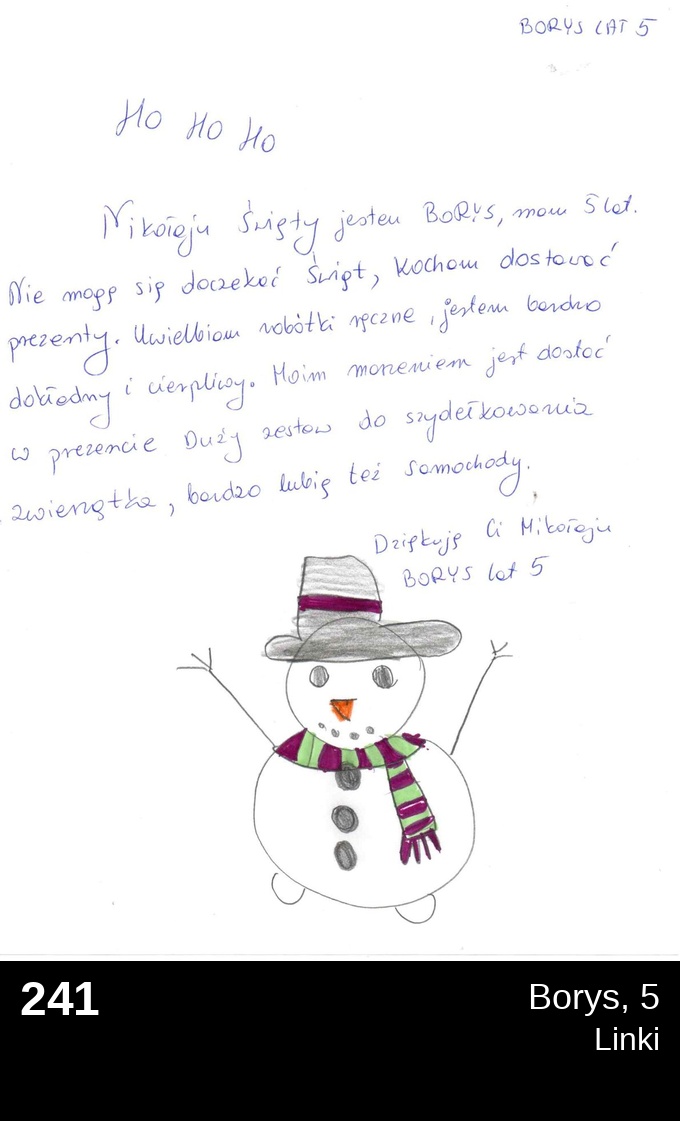 BORYS LAT 5
Ho Ho Ho
Mikołaju Święty jestem BORYS, mam 5 lat.
Nie mogę się doczekać Świąt, kocham dostawać
prezenty. Uwielbiam robótki ręczne, jestem bardzo
dokładny i cierpliwy. Moim marzeniem jest dostać
w prezencie Duży zestaw do szydełkowania
zwierzątka, bardzo lubię też samochody.
Dziękuję Ci Mikołaju
BORYS lat 5
241
Borys, 5
Linki